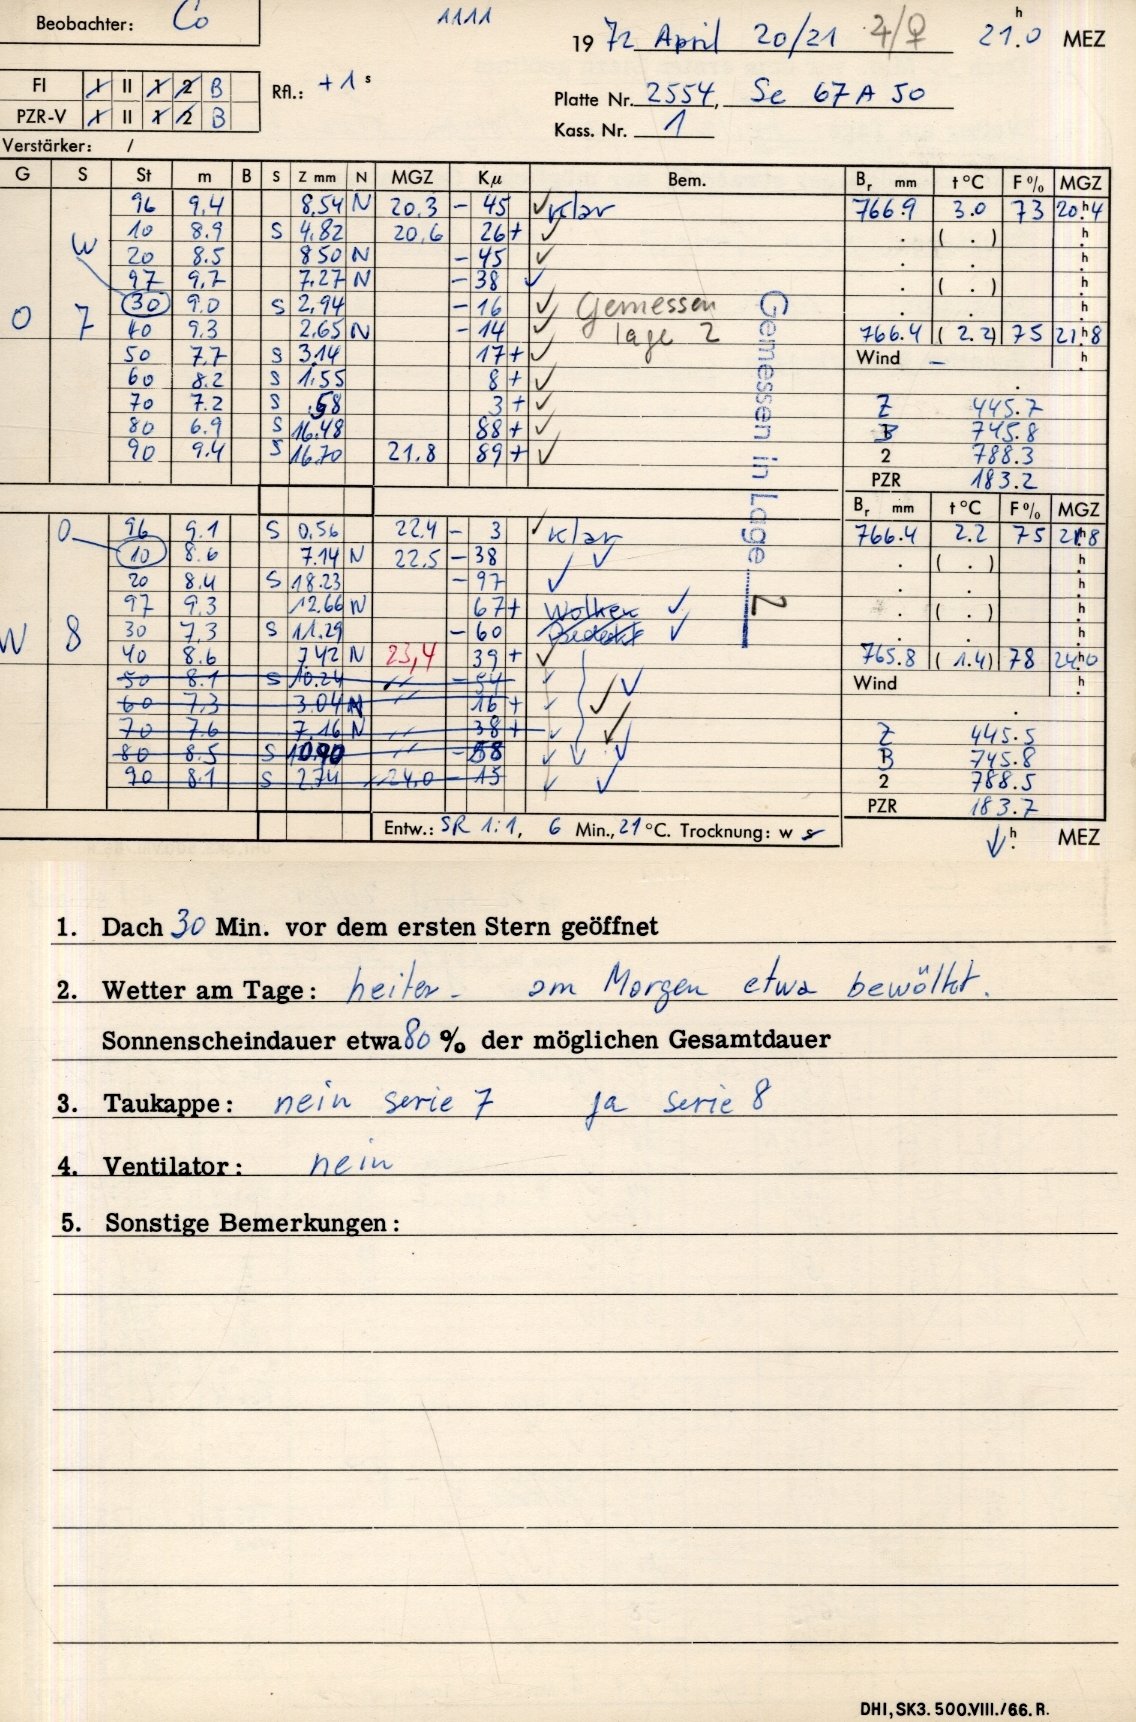 Beobachter: Co
1111
1972 April 20/21 ♃/♀ 21.ʰ0 MEZ
FI I II 1 2 B
PZR-V I II 1 2 B
Rfl.: +1 ˢ
Platte Nr. 2554, Se 67 A 50
Kass. Nr. 1
Verstärker: /
G S St m B S Z mm N MGZ Kμ Bem. Br mm t °C F % MGZ
96 9.4 8.54 N 20.3 - 45 ✓ klar 766.9 3.0 73 20.ʰ4
10 8.9 S 4.82 20.6 26 + ✓ . ( . ) .ʰ
W
20 8.5 8 50 N - 45 ✓ . . .ʰ
97 9.7 7.27 N - 38 ✓ . ( . ) .ʰ
30 9.0 S 2.94 - 16 ✓ Gemessen . . .ʰ
O 7
40 9.3 2.65 N - 14 ✓ lage 2 766.4 ( 2.2) 75 21.ʰ8
50 7.7 S 3.14 17 + ✓ Wind – ʰ
60 8.2 S 1.55 8 + ✓ .
70 7.2 S .58 3 + ✓ Z 445.7
80 6.9 S 16.48 88 + ✓ B 745.8
90 9.4 S 16.70 21.8 89 + ✓ 2 788.3
PZR 183.2
Gemessen in Lage 2
Br mm t °C F % MGZ
O 96 9.1 S 0,56 22.4 - 3 ✓ klar 766.4 2.2 75 21.ʰ8
10 8.6 7.14 N 22.5 - 38 ✓ . ( . ) .ʰ
20 8.4 S 18.23 - 97 ✓ . . .ʰ
97 9.3 12.66 N 67 + Wolken ✓ . ( . ) .ʰ
W 8
30 7,3 S 11.29 - 60 Bedeckt ✓ . . .ʰ
40 8.6 7.42 N 23,4 39 + ✓ 765.8 ( 1.4) 78 24.ʰ0
50 8.1 S 10.24 " - 54 ✓ ✓ Wind ʰ
60 7,3 3.04 N " 16 + ✓ ✓ .
70 7.6 7.16 N " 38 + ✓ ✓ Z 445.5
80 8.5 S 10.90 " - 58 ✓ ✓ B 745.8
90 8.1 S 2.74 24,0 - 15 ✓ ✓ 2 788.5
PZR 183.7
Entw.: SR 1:1, 6 Min., 21 °C. Trocknung: w s
↓ ʰ. MEZ
1. Dach 30 Min. vor dem ersten Stern geöffnet
2. Wetter am Tage: heiter - am Morgen etwa bewölkt.
Sonnenscheindauer etwa 80 % der möglichen Gesamtdauer
3. Taukappe: nein serie 7 ja serie 8
4. Ventilator: nein
5. Sonstige Bemerkungen:
DHI, SK3. 500.VIII./66. R.